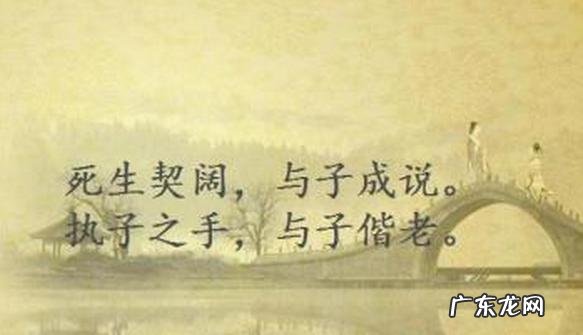 死生契阔，与子成说。
执子之手，与子偕老。
广东龙网